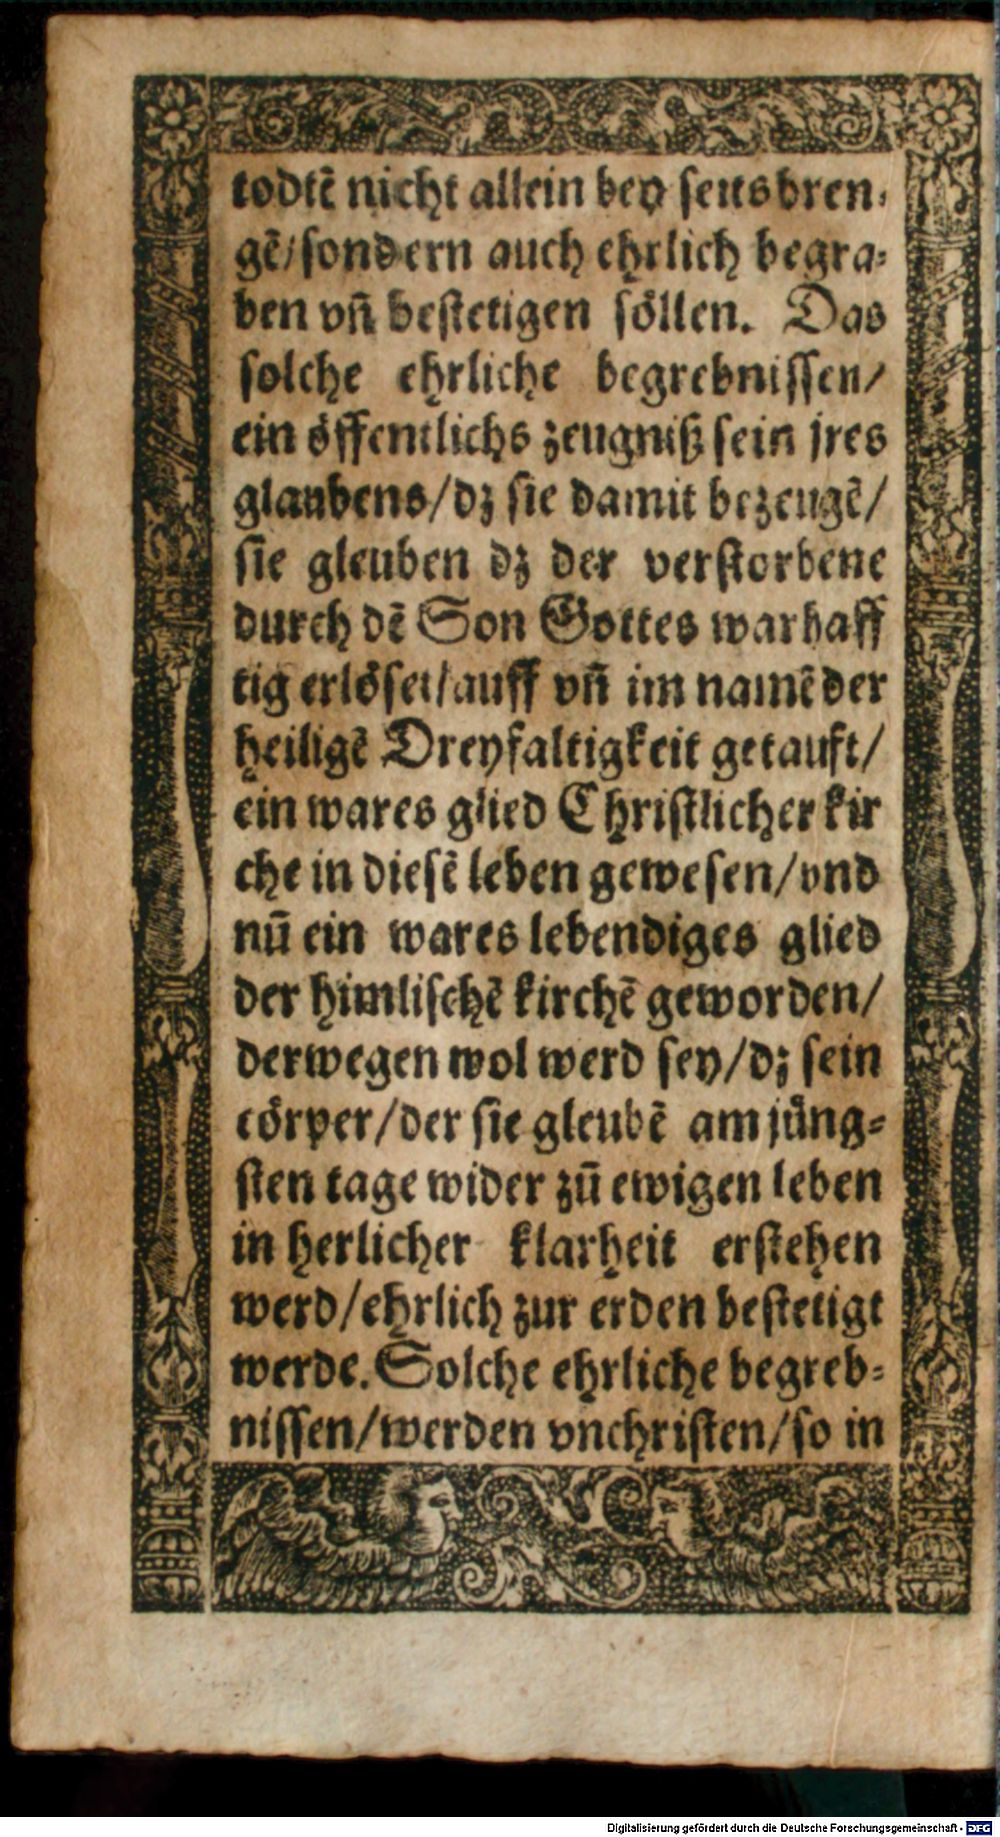 todtē nicht allein bey seits bren⸗
gē/sondern auch ehrlich begra⸗
ben vñ bestetigen söllen. Das
solche ehrliche begrebnissen/
ein öffentlichs zeugniß sein jres
glaubens/dz sie damit bezeugē/
sie gleuben dz der verstorbene
durch dē Son Gottes warhaff
tig erlöset/auff vñ im namē der
heiligē Dreyfaltigkeit getauft/
ein wares glied Christlicher kir
che in diesē leben gewesen/vnd
nū ein wares lebendiges glied
der himlischē kirchē geworden/
derwegen wol werd sey/dz sein
cörper/der sie gleubē am jüng⸗
sten tage wider zū ewigen leben
in herlicher klarheit erstehen
werd/ehrlich zur erden bestetigt
werde. Solche ehrliche begreb⸗
nissen/werden vnchristen/so in
Digitalisierung gefördert durch die Deutsche Forschungsgemeinschaft - DFG